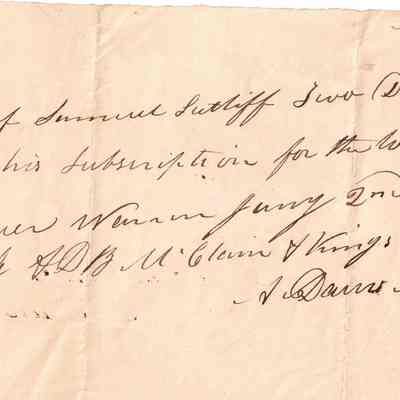 of Samuel Sutliff Two (D
his Subscription for the W
Warren Jany 2nd
A.D B McClain & Kings
A. Daws